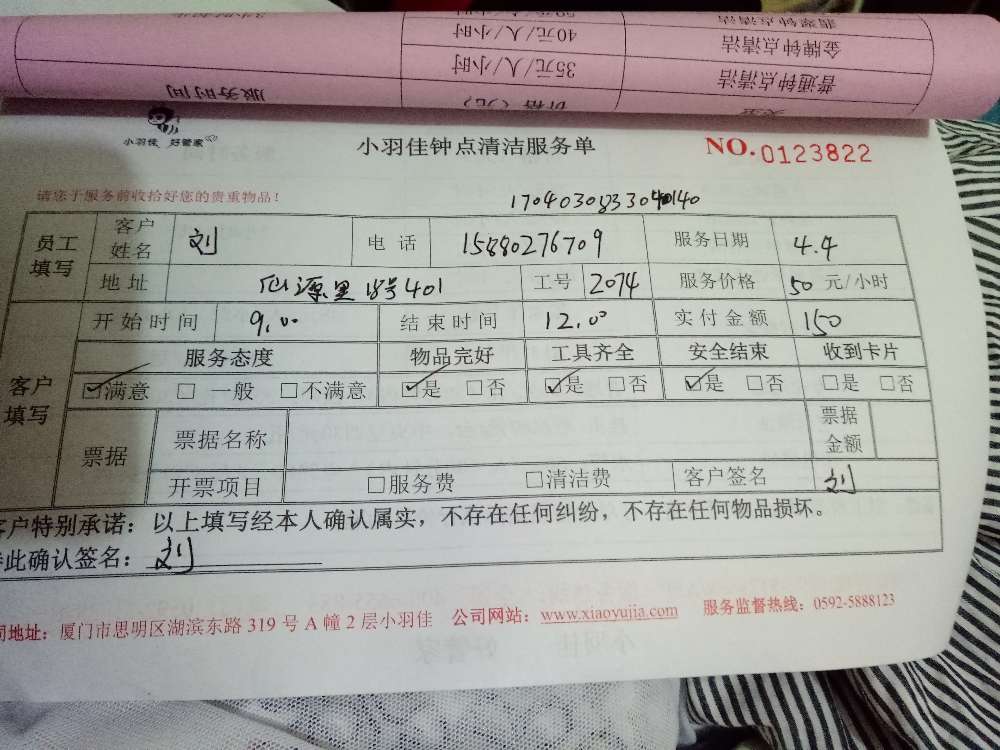 翡翠钟点清洁
金牌钟点清洁 40元/人/小时
普通钟点清洁 35元/人/小时
价格(元) 服务时间
小羽佳 好管家
小羽佳钟点清洁服务单
NO.0123822
请您于服务前收拾好您的贵重物品!
员工填写 客户姓名 刘 电话 15880276709 服务日期 4.4
地址 仙源里18号401 工号 2074 服务价格 50 元/小时
客户填写 开始时间 9.00 结束时间 12.00 实付金额 150
服务态度 物品完好 工具齐全 安全结束 收到卡片
☑满意 □一般 □不满意 ☑是 □否 ☑是 □否 ☑是 □否 □是 □否
票据 票据名称 票据金额
开票项目 □服务费 □清洁费 客户签名 刘
客户特别承诺:以上填写经本人确认属实,不存在任何纠纷,不存在任何物品损坏。
此确认签名: 刘
地址:厦门市思明区湖滨东路 319 号 A 幢 2 层小羽佳 公司网站:www.xiaoyujia.com 服务监督热线:0592-5888123